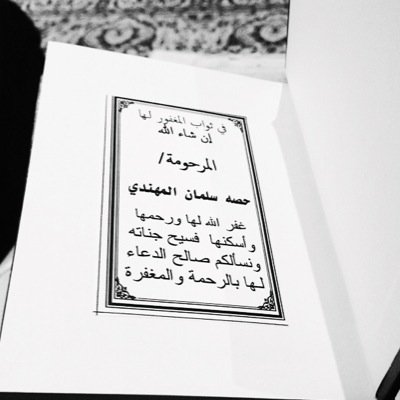 في ثواب المغفور لها
إن شاء الله
المرحومة/
حصه سلمان المهندي
غفر الله لها ورحمها
وأسكنها فسيح جناته
ونسألكم صالح الدعاء
لها بالرحمة والمغفرة